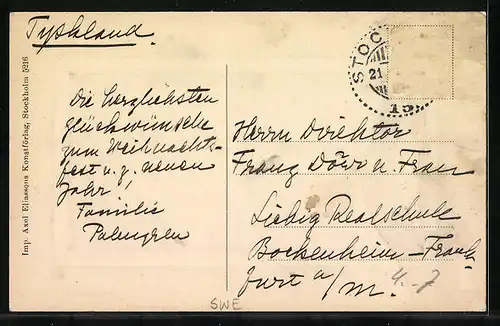 Tyskland.
STOC
21
15
Die herzlichsten
glückwünsche
zum Weihnachts-
fest u. z. neuen
Jahr!
Familie
Palmgren
Herrn Direktor
Franz Dörr u. Frau
Liebig Realschule
Bockenheim-Frank-
furt a/M.
4.-7
SWE
Imp. Axel Eliassons Konstförlag, Stockholm 5216